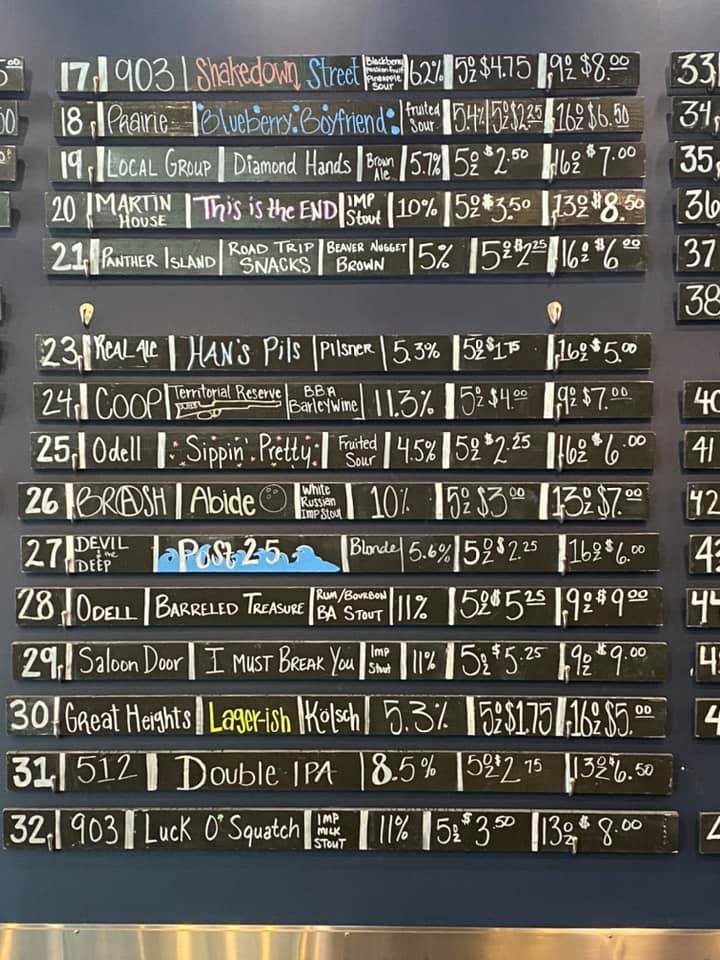 17 903 Shakedown Street Blackberry Passionfruit Pineapple Sour 6.2% 5oz $4.75 9oz $8.00 33
18 Prairie Blueberry Boyfriend fruited Sour 5.4% 5oz $2.25 16oz $6.50 34
19 Local Group Diamond Hands Brown Ale 5.7% 5oz $2.50 16oz $7.00 35
20 Martin House This is the END IMP Stout 10% 5oz $3.50 13oz $8.50 36
21 Panther Island Road Trip Snacks Beaver Nugget Brown 5% 5oz $2.25 16oz $6.00 37
38
23 Real Ale HAN'S Pils Pilsner 5.3% 5oz $1.75 16oz $5.00
24 COOP Territorial Reserve BBA Barleywine 11.3% 5oz $4.00 9oz $7.00 40
25 Odell Sippin' Pretty Fruited Sour 4.5% 5oz $2.25 16oz $6.00 41
26 BRASH Abide White Russian Imp Stout 10% 5oz $3.00 13oz $7.00 42
27 DEVIL & the DEEP Post 25 Blonde 5.6% 5oz $2.25 16oz $6.00
28 Odell Barreled Treasure Rum/Bourbon BA Stout 11% 5oz $5.25 9oz $9.00 44
29 Saloon Door I Must Break You Imp Stout 11% 5oz $5.25 9oz $9.00
30 Great Heights Lager-ish Kölsch 5.3% 5oz $1.75 16oz $5.00
31 512 Double IPA 8.5% 5oz $2.75 13oz $6.50
32 903 Luck O' Squatch IMP MILK STOUT 11% 5oz $3.50 13oz $8.00